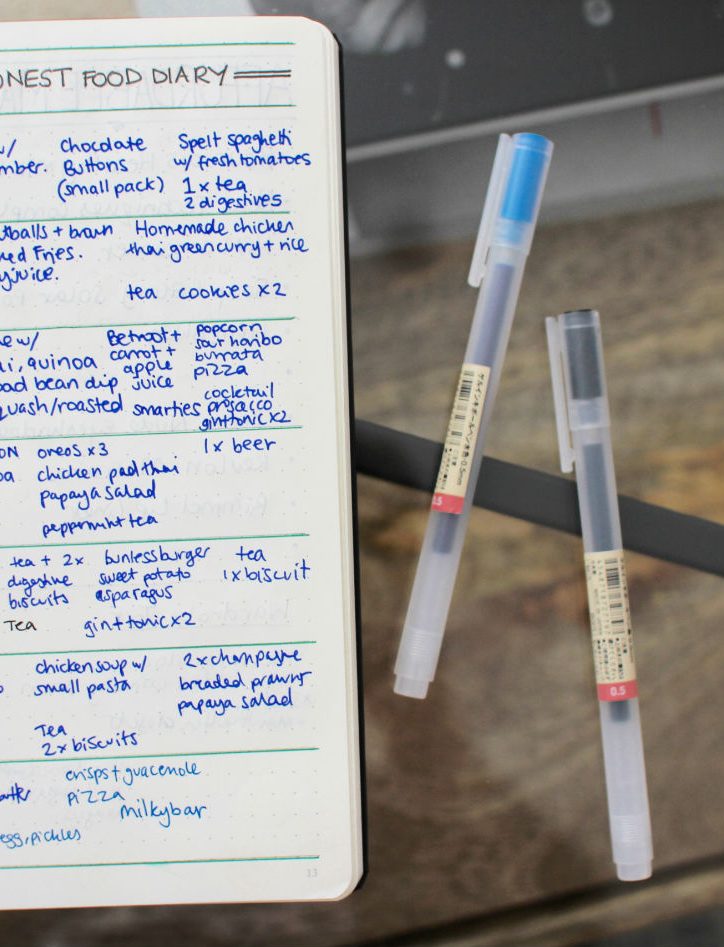 ONEST FOOD DIARY
w/ Chocolate Spelt spaghetti
mber. Buttons w/ fresh tomatoes
(small pack) 1 x tea
2 digestives
tballs + brown Homemade chicken
ed Fries. thai green curry + rice
juice.
tea cookies x2
e w/ Betroot + popcorn
i, quinoa carrot + sour haribo
oad bean dip apple burrata
juice pizza
quash/roasted smarties cocktail
prosecco
gin+tonic x2
ON oreos x3 1x beer
oa chicken pad thai
papaya salad
peppermint tea
tea + 2x bunless burger tea
digestive sweet potato 1x biscuit
biscuits asparagus
Tea gin+tonic x2
chicken soup w/ 2x champagne
small pasta breaded prawns
papaya salad
Tea
2x biscuits
crisps + guacemole
pizza
milkybar
egg, pickles
33
0.5mm
0.5
0.5